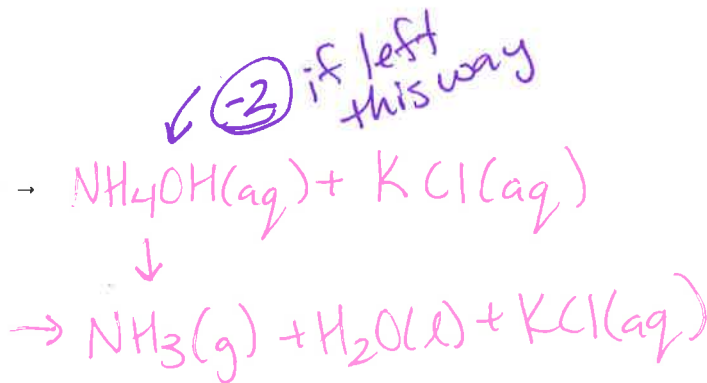 -2 if left
this way
→ NH4OH(aq) + KCl(aq)
↓
→ NH3(g) + H2O(l) + KCl(aq)